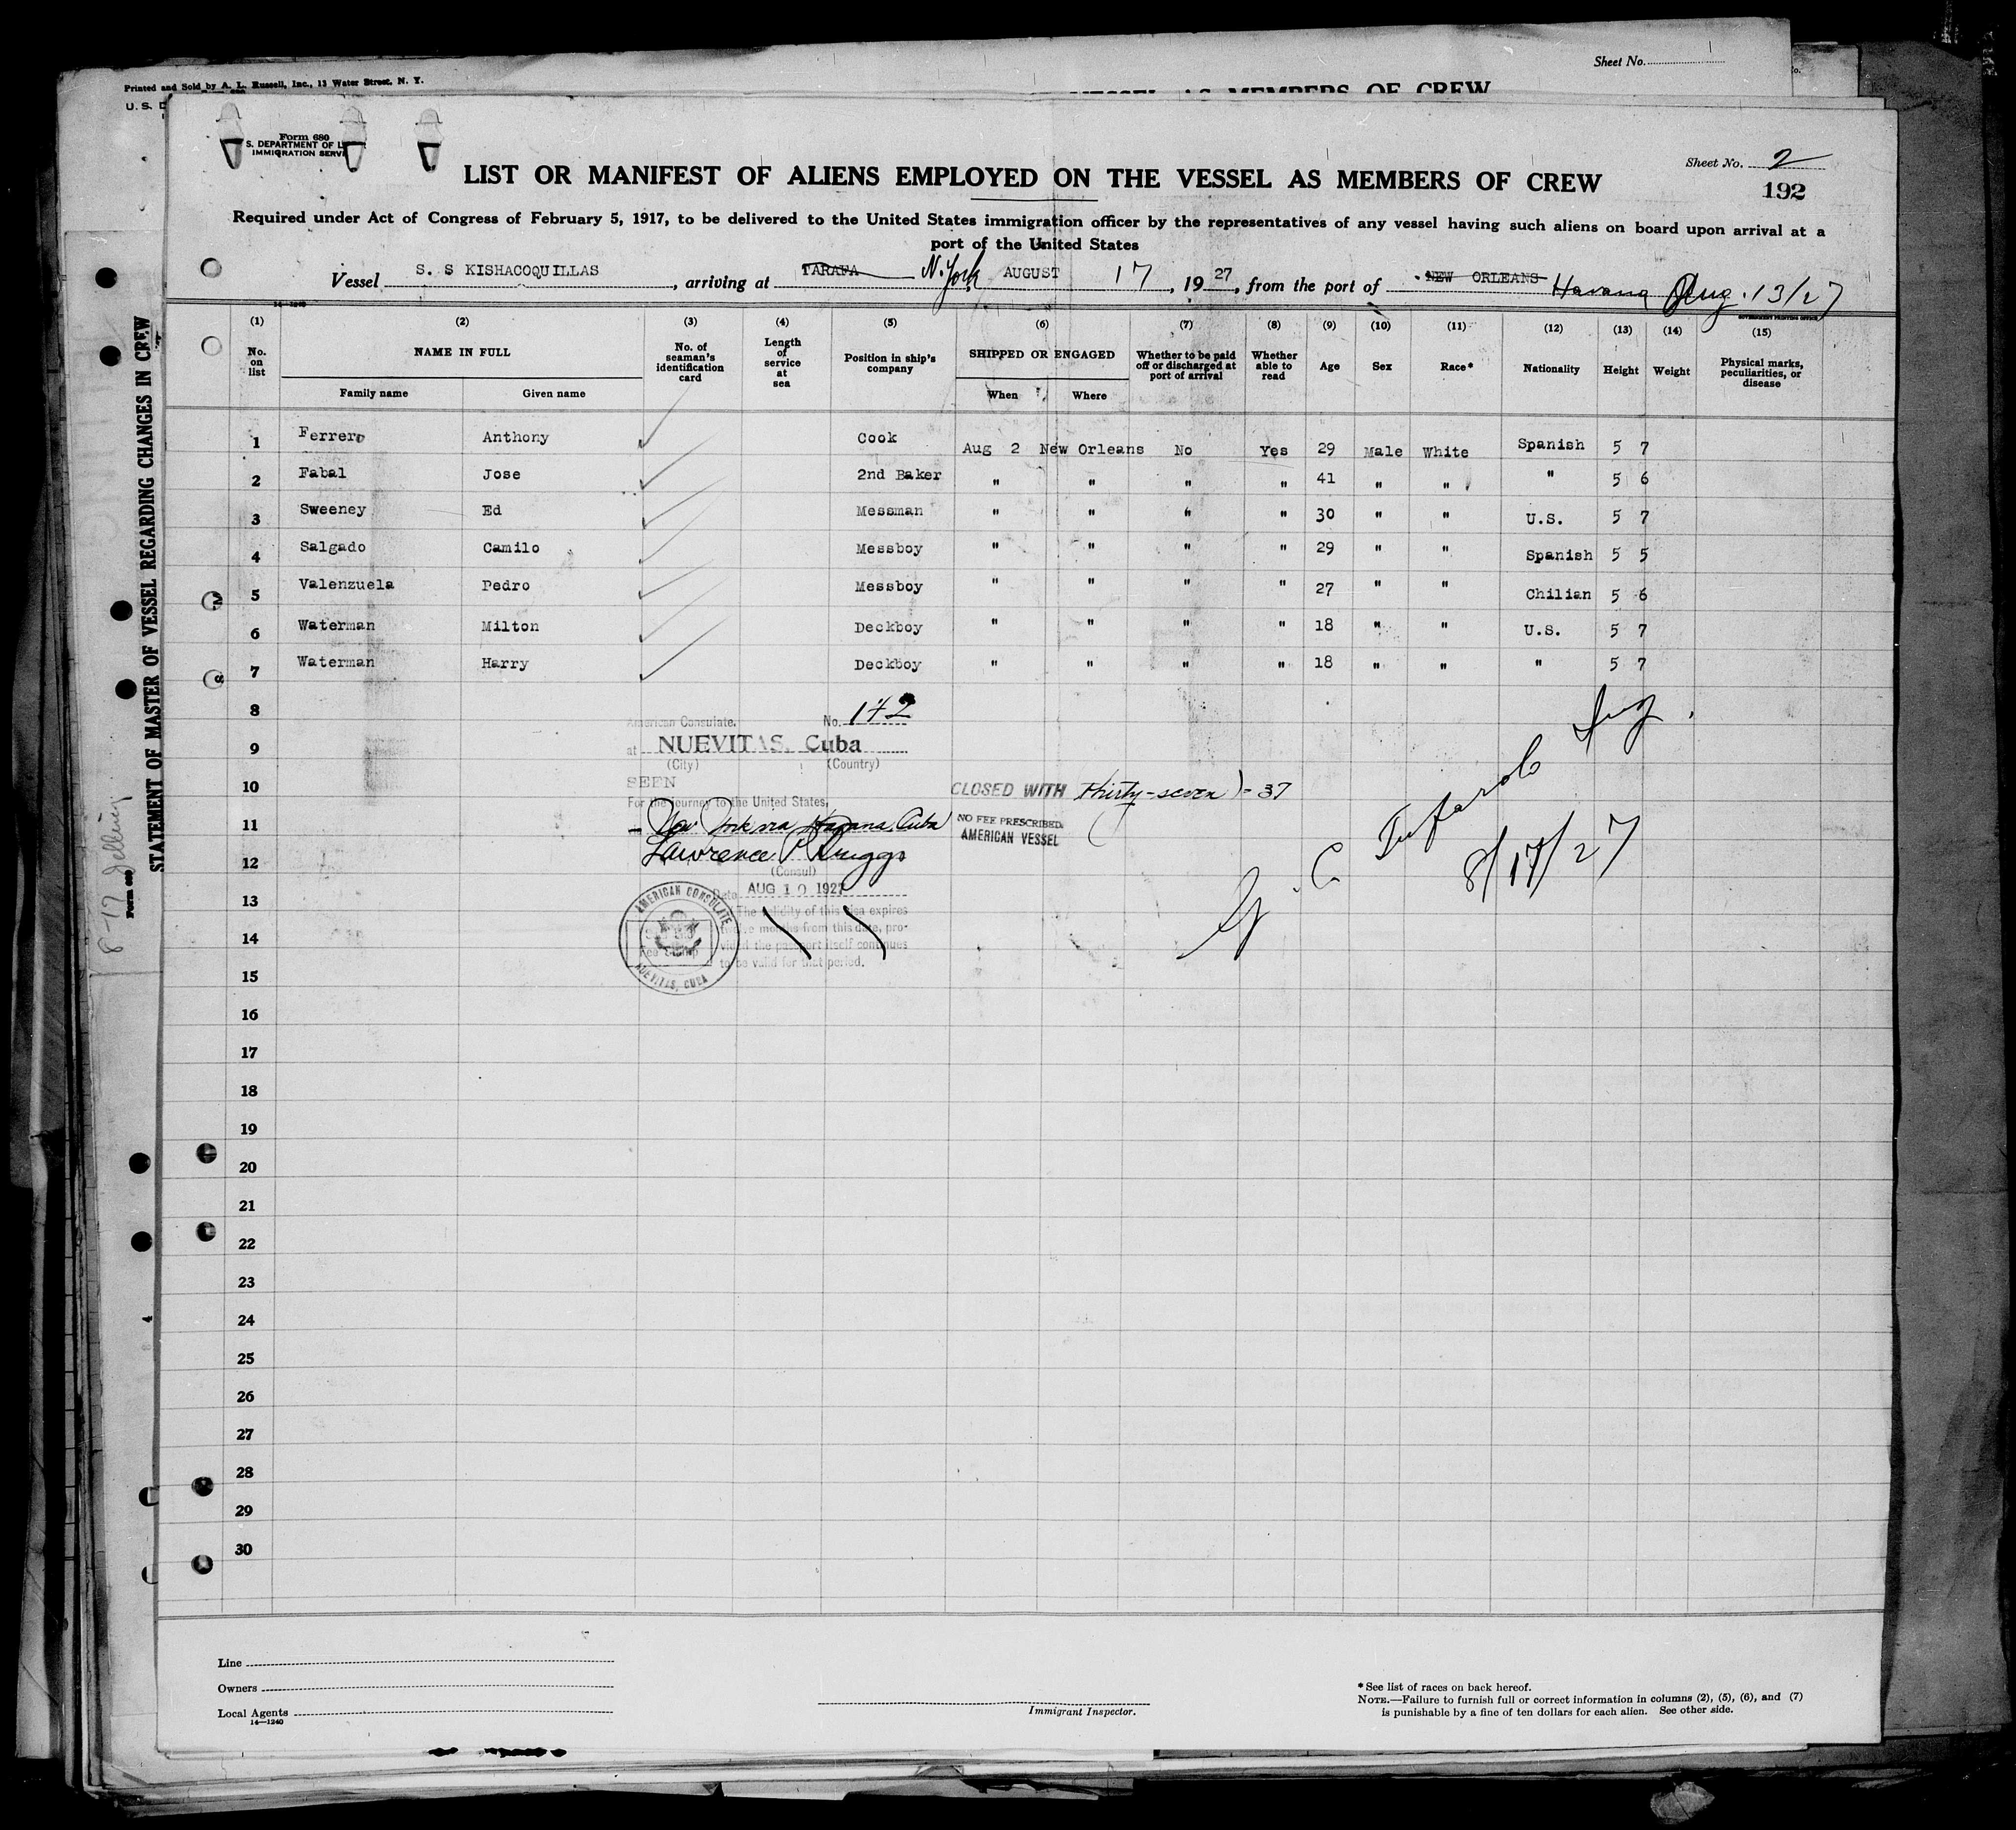 Sheet No.
Printed and Sold by A. L. Russell, Inc., 13 Water Street, N. Y.
U. S. D
VESSEL AS MEMBERS OF CREW
Form 680
S. DEPARTMENT OF L
IMMIGRATION SERVI
Sheet No. 2
192
LIST OR MANIFEST OF ALIENS EMPLOYED ON THE VESSEL AS MEMBERS OF CREW
Required under Act of Congress of February 5, 1917, to be delivered to the United States immigration officer by the representatives of any vessel having such aliens on board upon arrival at a
port of the United States
Vessel S. S KISHACOQUILLAS, arriving at TARAFA N. York AUGUST 17, 1927, from the port of NEW ORLEANS Havana Aug. 13/27
14-1240
GOVERNMENT PRINTING OFFICE
(1) (2) (3) (4) (5) (6) (7) (8) (9) (10) (11) (12) (13) (14) (15)
No. on list NAME IN FULL No. of seaman's identification card Length of service at sea Position in ship's company SHIPPED OR ENGAGED Whether to be paid off or discharged at port of arrival Whether able to read Age Sex Race* Nationality Height Weight Physical marks, peculiarities, or disease
Family name Given name When Where
1 Ferrero Anthony Cook Aug 2 New Orleans No Yes 29 Male White Spanish 5 7
2 Fabal Jose 2nd Baker " " " " 41 " " " 5 6
3 Sweeney Ed Messman " " " " 30 " " U.S. 5 7
4 Salgado Camilo Messboy " " " " 29 " " Spanish 5 5
5 Valenzuela Pedro Messboy " " " " 27 " " Chilian 5 6
6 Waterman Milton Deckboy " " " " 18 " " U.S. 5 7
7 Waterman Harry Deckboy " " " " 18 " " " 5 7
8
9
10
11
12
13
14
15
16
17
18
19
20
21
22
23
24
25
26
27
28
29
30
American Consulate, No. 142
at NUEVITAS, Cuba
(City) (Country)
SEEN
For the journey to the United States,
New York via Havana, Cuba
Lawrence P. Briggs
(Consul)
Date AUG 10 1927
The validity of this visa expires
twelve months from this date, pro-
vided the passport itself continues
to be valid for that period.
AMERICAN CONSULATE
Fee Stamp
NUEVITAS, CUBA
CLOSED WITH Thirty-seven ) = 37
NO FEE PRESCRIBED.
AMERICAN VESSEL
G. C.
8/17/27
Line
Owners
Local Agents
14-1240
Immigrant Inspector.
* See list of races on back hereof.
NOTE.—Failure to furnish full or correct information in columns (2), (5), (6), and (7)
is punishable by a fine of ten dollars for each alien. See other side.
STATEMENT OF MASTER OF VESSEL REGARDING CHANGES IN CREW
Form 680
8-17